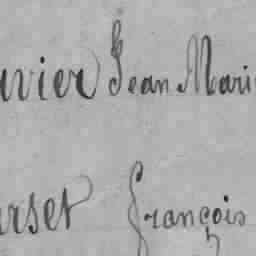 uvier Jean Mari
urset François